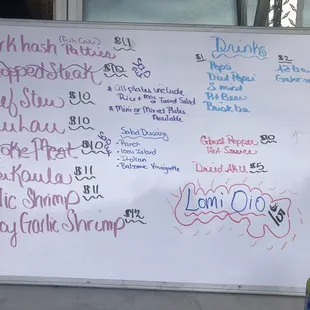 rk hash Patties (Fish Cake) $11
opped Steak $10
ef Stew $10
u Lau $10
oke Meat $10
i Kaula $11
lic Shrimp $11
cy Garlic Shrimp $12
* All plates include
Rice + mac or Tossed Salad
* Mini or Mixed Plates
Available
Salad Dressing
Ranch
1000 Island
Italian
Balsamic Vinaigrette
Drinks
$1
Pepsi
Diet Pepsi
Root Beer
$2
Ghost Pepper
Hot Sauce
Dried Aku $5
Lomi Oio